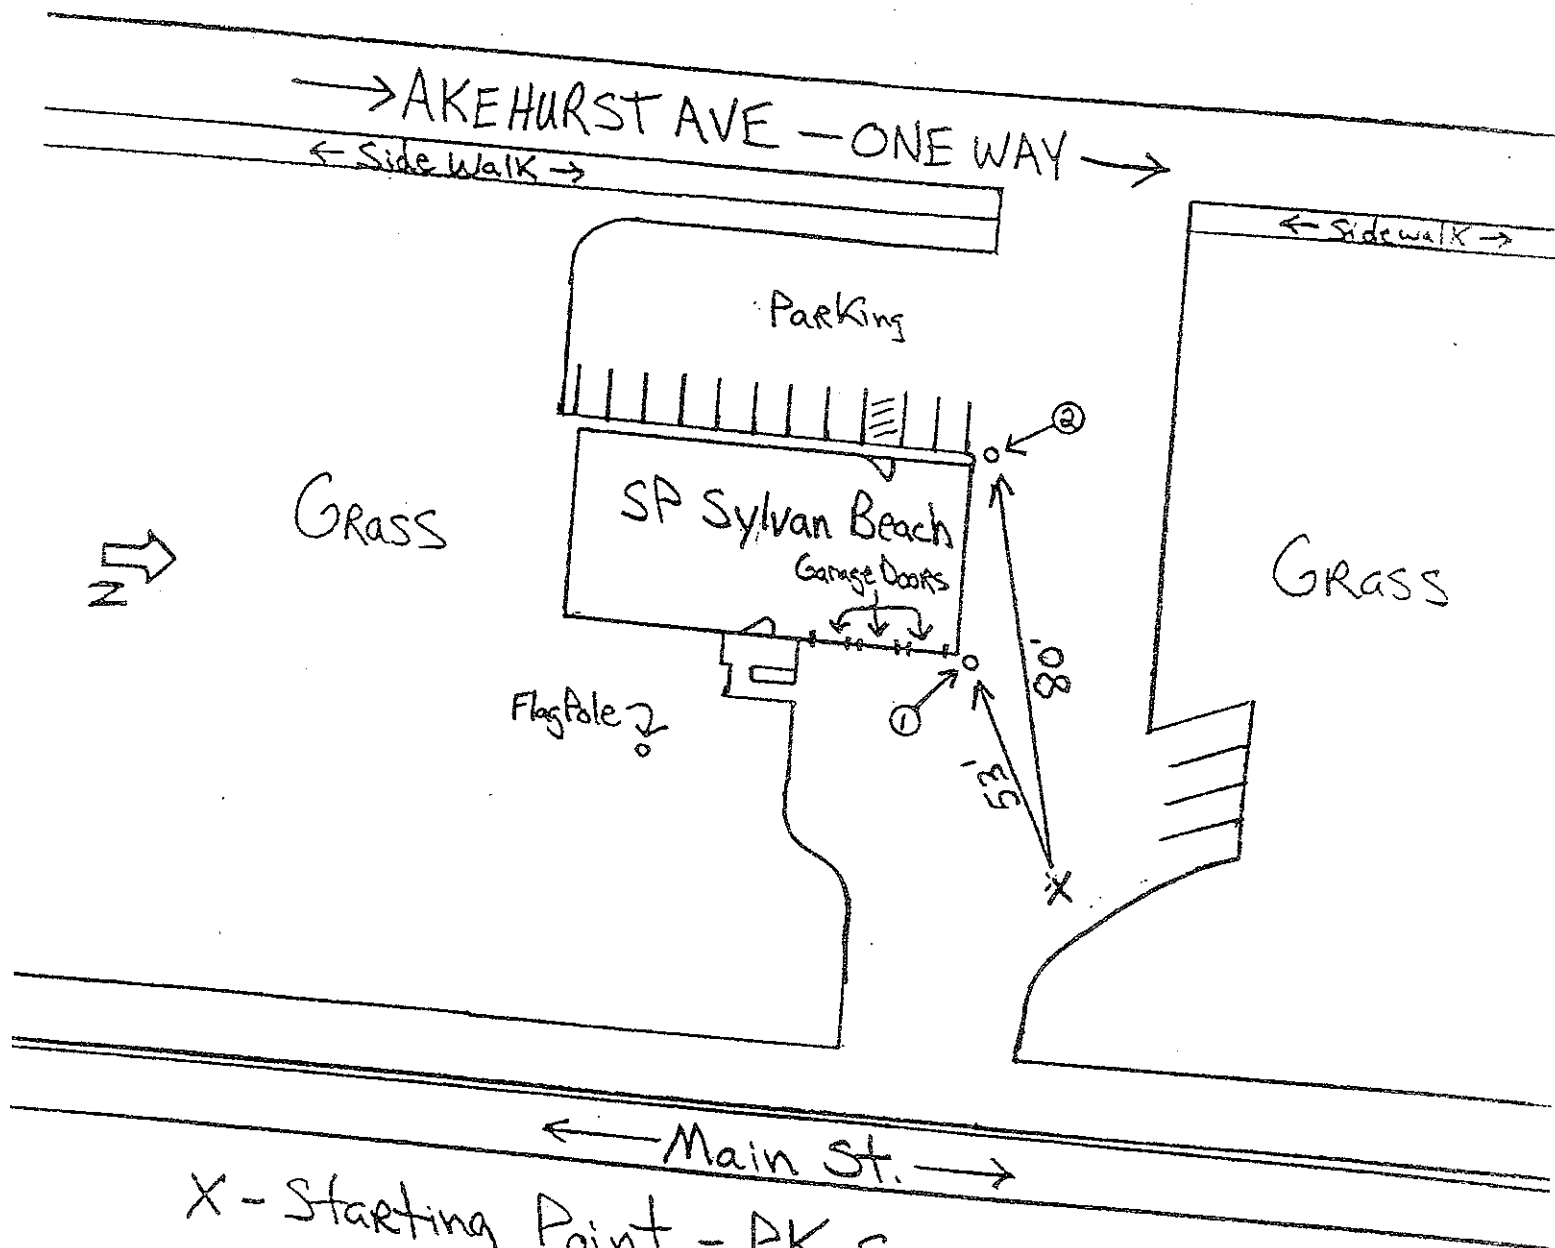 AKEHURST AVE - ONE WAY
Side Walk
Sidewalk
Parking
2
SP Sylvan Beach
Garage Doors
Grass
Grass
N
80'
1
Flag Pole
53'
X
Main St.
X - Starting Point - PK